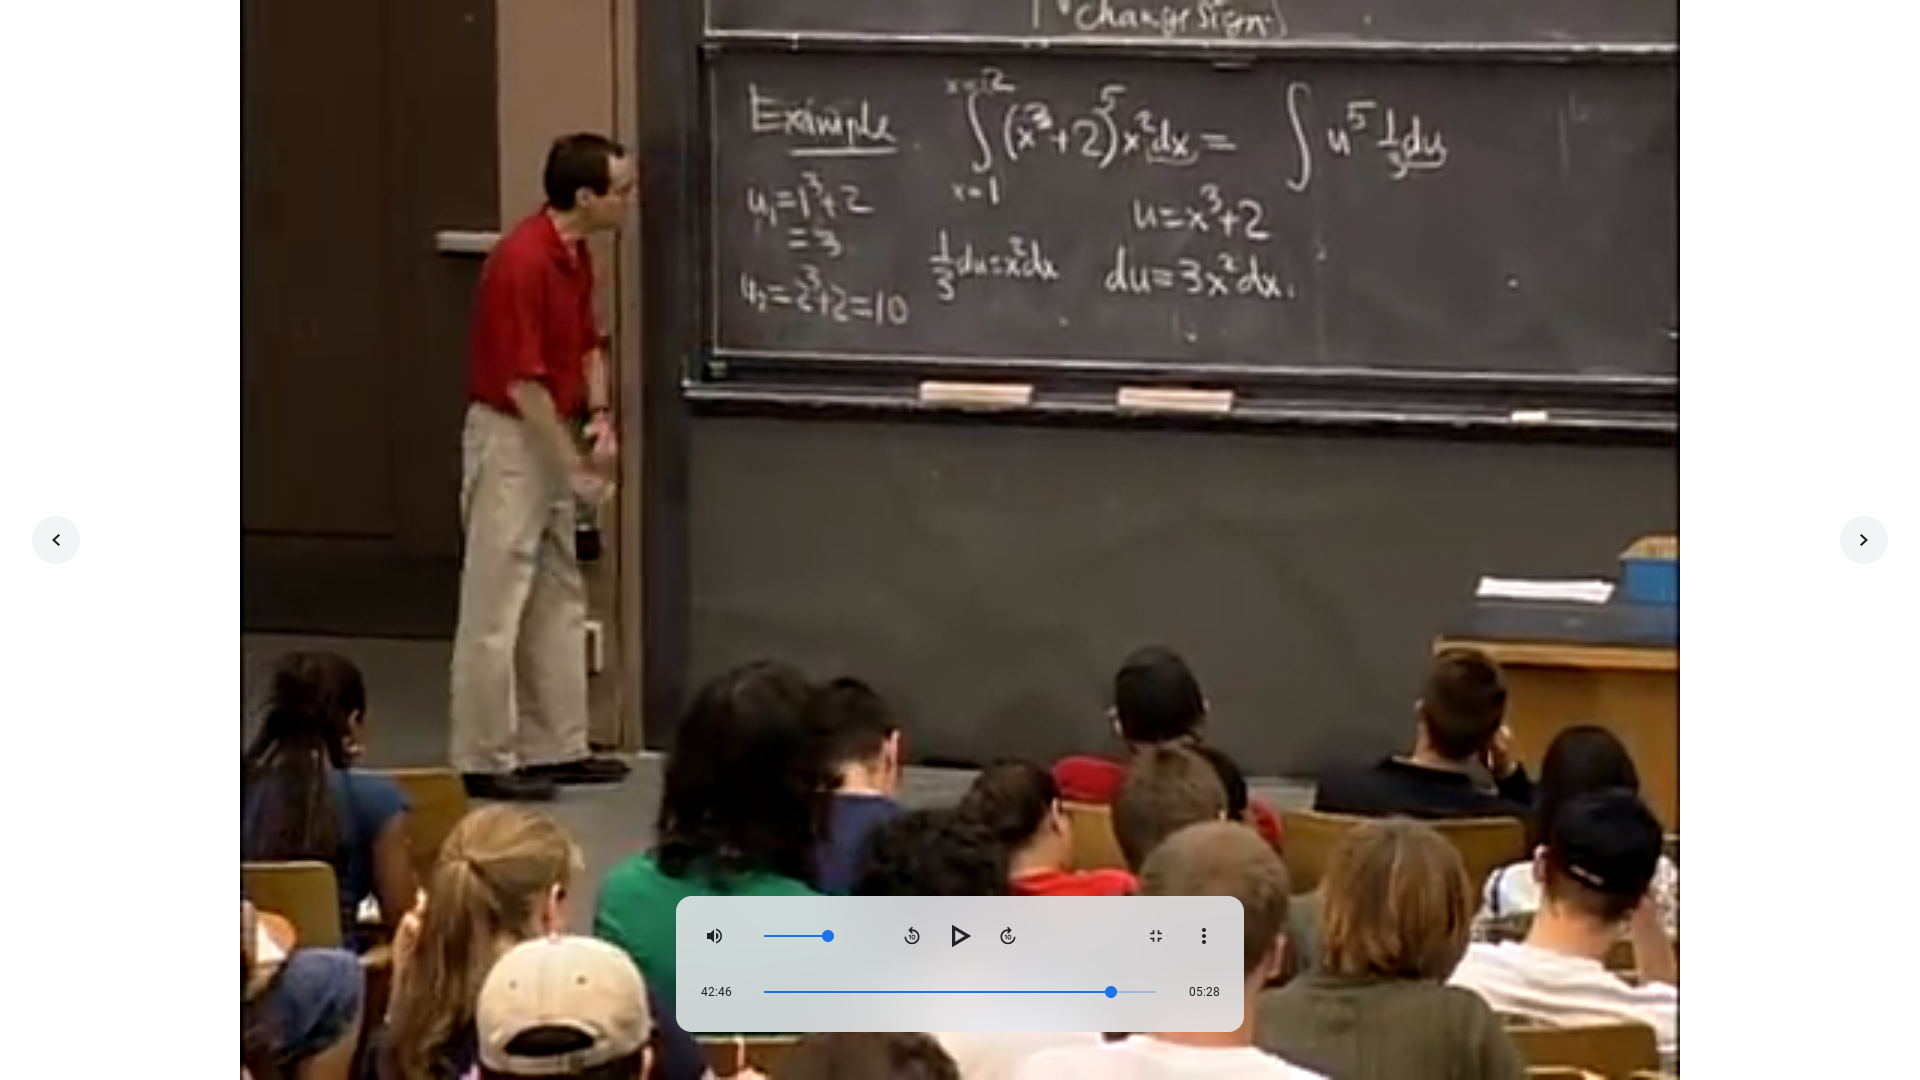 "change sign")
Example ∫_{x=1}^{x=2} (x³+2)⁵ x² dx = ∫ u⁵ 1/3 du
u₁=1³+2
=3
u₂=2³+2=10
1/3 du=x²dx
u=x³+2
du=3x²dx.
10 10
42:46 05:28